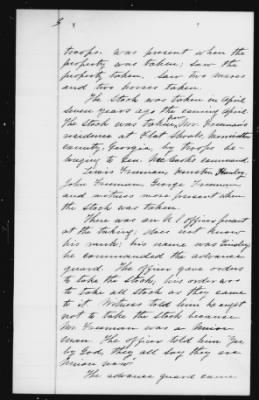 troops. was present when the
property was taken; saw the
property taken. Saw two mares
and two horses taken.
The stock was taken in April
seven years ago the coming April.
The stock was taken from Mr. Freeman's
residence at Flat Shoals, Meriwether
county, Georgia, by troops be-
longing to Gen. McCook's command.
Lewis Freeman, Houston
John Freeman, George Freeman
and witness were present when
the stock was taken.
There was an officer present
at the taking; does not know
his rank; his name was
he commanded the advance
guard. The officer gave orders
to take the stock, his order was
to take all stock as they came
to it. Witness told him he ought
not to take the stock because
Mr. Freeman was a Union
man. The officer told him "Yes
by God, they all say they are
Union now."
The advance guard came